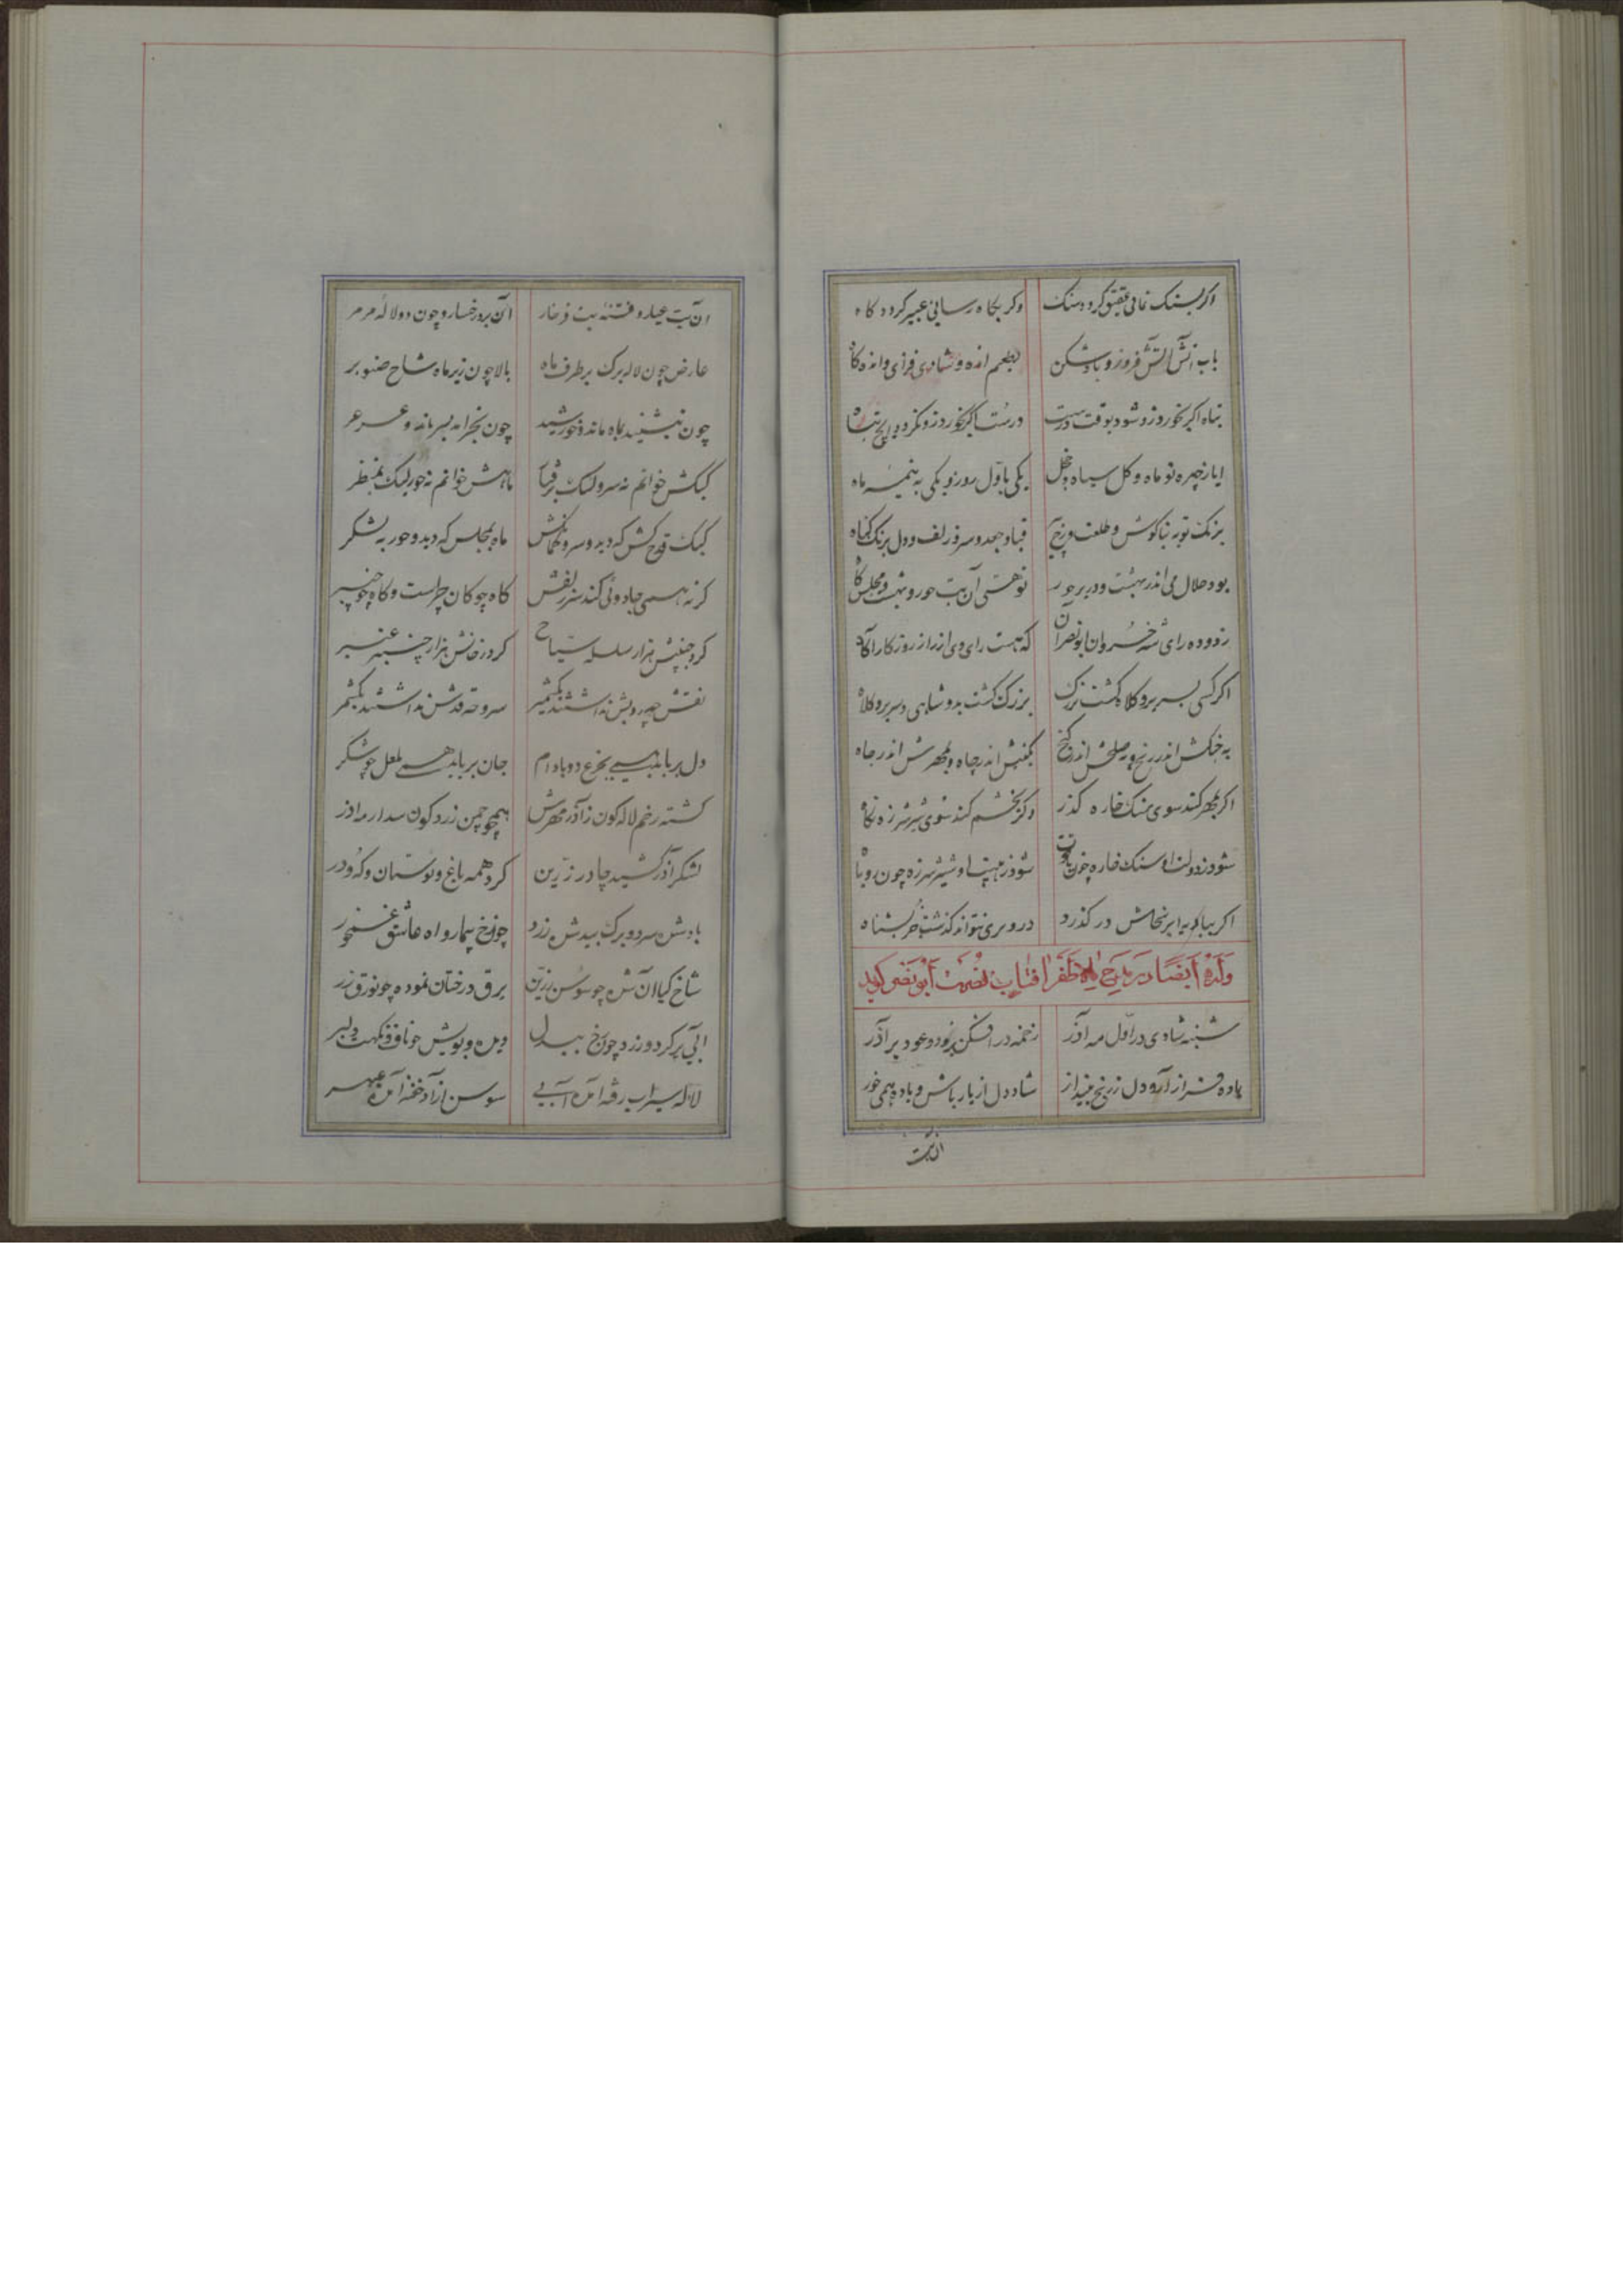 اکر بسنک نمائی عقیق کردد سنک وکر بکاه رسانی عبیر کردد کاه
باب آتش فروز و باد شکن بطعم انده و شادی فزای و انده کاه
تباه اکر بخورد زو شود بوقت درست درست اکر بخورد زو نکردد تباه
ایا ز چهره تو ماه و کل سیاه و خجل یکی باول روز و یکی به نیمه ماه
برنک توبه بناکوش و طلعت و رخ قبا و جعد و سر زلف و دل برنک کناه
بود حلال می اندر بهشت و در بر حور تو هستی آن بت حور و بهشت مجلس کاه
زدوده رای شه خسروان ابونصر آن که هست رای وی از راز روزکار آکاه
اکر کسی بسریر و کلاه کشت بزرک بزرک کشت بدو شاهی و سریر و کلاه
به جنکش اندر رنج و بصلحش اندر کنج بکینش اندر چاه و بمهرش اندر جاه
اکر بمهر کند سوی سنک خاره کذر وکر بخشم کند سوی شیر شرزه نکاه
شود ز دولت او سنک خاره چون یاقوت شود ز هیبت او شیر شرزه چون روباه
اکر ببادیه ابر سخاش در کذرد درو بری نتواند کذشت جز بشناه
وله ایضا در مدح ظفر افتاب نصرت ابونصر کوید
شنبه شادی در اول مه آذر زخمه در افکن برود و عود بر آذر
باده فراز آر و دل ز رنج بپرداز شاد دل از یار باش و باده همی خور
ان بت
ان بت عیار و فتنه بت فرخار آن بدو رخسار و چون دو لاله مرمر
عارض چون لاله برک بر طرف ماه بالا چون زیر ماه شاخ صنوبر
چون بنشیند بماه ماند و خورشید چون بخرامد بسرو ماند و عرعر
کبکش خوانم نه سرو لیک برفتار ماهش خوانم نه حور لیک بمنظر
کبک قدح کش که دید و سرو کمانکش ماه بمجلس که دید و حور به لشکر
کر نه همی جادوئی کند سر زلفش کاه چو کان چراست و کاه چو چنبر
کرد جبینش هزار سلسله سیاح کرد زخانش هزار چنبر عنبر
نقش چو رویش نداشتند بکشمیر سرو چو قدش نداشتند بکشمر
دل برباید همی بجزع دو بادام جان برباید همی بلعل چو شکر
کشته رخم لاله کون ز آذر مهرش همچو چمن زرد کون
لشکر آذر کشید چادر زرین کرد همه باغ و بوستان و که و در
بادش سرد و برک بیدش زرد چون رخ بیمار و اه عاشق غمخور
شاخ کیا آن شده چو سوسن زرین برق درختان نموده چو نورق زر
آبی پر کرد و زرد چون رخ بیدل ویژه و بویش چو ناف و نکهت دلبر
لاله سیراب رفته آمده آبی سوسن آزاد خفته آمده عبهر